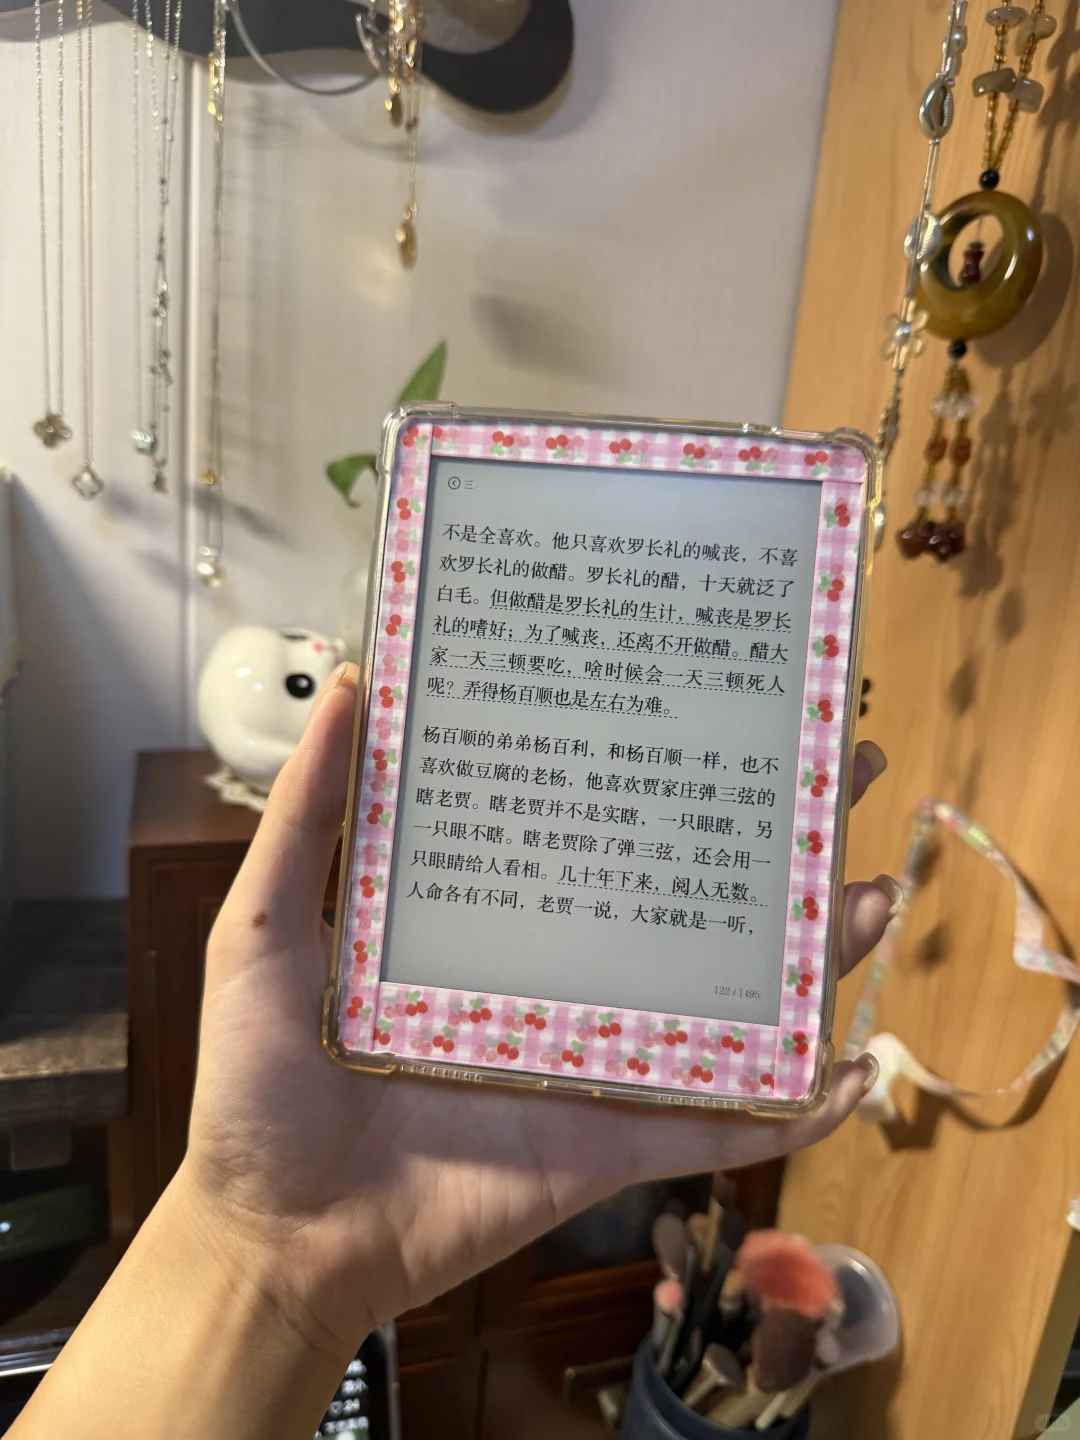 三
不是全喜欢。他只喜欢罗长礼的喊丧，不喜
欢罗长礼的做醋。罗长礼的醋，十天就泛了
白毛。但做醋是罗长礼的生计，喊丧是罗长
礼的嗜好；为了喊丧，还离不开做醋。醋大
家一天三顿要吃，啥时候会一天三顿死人
呢？弄得杨百顺也是左右为难。
杨百顺的弟弟杨百利，和杨百顺一样，也不
喜欢做豆腐的老杨，他喜欢贾家庄弹三弦的
瞎老贾。瞎老贾并不是实瞎，一只眼瞎，另
一只眼不瞎。瞎老贾除了弹三弦，还会用一
只眼睛给人看相。几十年下来，阅人无数。
人命各有不同，老贾一说，大家就是一听，
122 / 1495
24